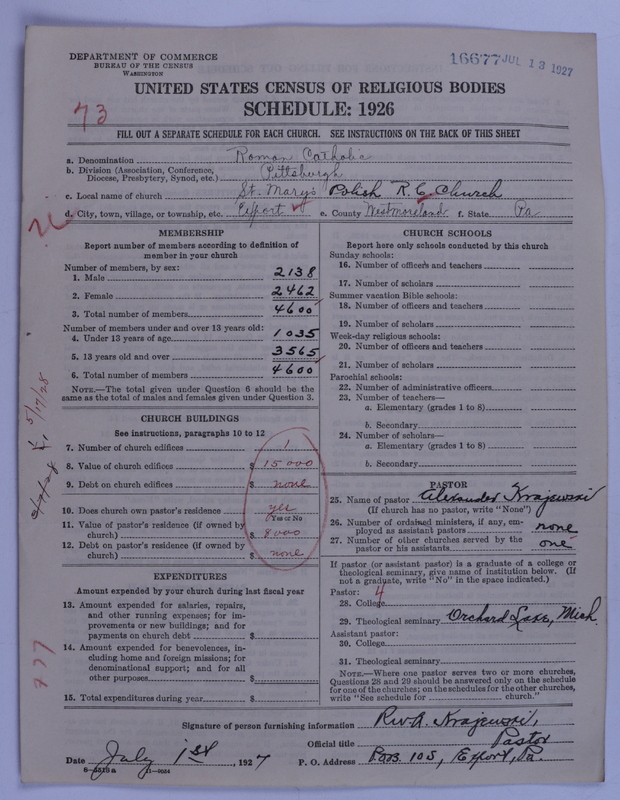 DEPARTMENT OF COMMERCE
BUREAU OF THE CENSUS
WASHINGTON
16677 JUL 13 1927
UNITED STATES CENSUS OF RELIGIOUS BODIES
SCHEDULE: 1926
73
FILL OUT A SEPARATE SCHEDULE FOR EACH CHURCH. SEE INSTRUCTIONS ON THE BACK OF THIS SHEET
a. Denomination Roman Catholic
b. Division (Association, Conference, Diocese, Presbytery, Synod, etc.) Pittsburgh
c. Local name of church St. Mary's Polish R. C. Church
d. City, town, village, or township, etc. Export e. County Westmoreland f. State Pa
MEMBERSHIP
Report number of members according to definition of
member in your church
Number of members, by sex:
1. Male 2138
2. Female 2462
3. Total number of members 4600
Number of members under and over 13 years old:
4. Under 13 years of age 1035
5. 13 years old and over 3565
6. Total number of members 4600
NOTE.—The total given under Question 6 should be the
same as the total of males and females given under Question 3.
CHURCH BUILDINGS
See instructions, paragraphs 10 to 12
7. Number of church edifices 1
8. Value of church edifices $ 15000
9. Debt on church edifices $ none
10. Does church own pastor's residence yes
Yes or No
11. Value of pastor's residence (if owned by
church) $ 8000
12. Debt on pastor's residence (if owned by
church) $ none
EXPENDITURES
Amount expended by your church during last fiscal year
13. Amount expended for salaries, repairs,
and other running expenses; for im-
provements or new buildings; and for
payments on church debt $
14. Amount expended for benevolences, in-
cluding home and foreign missions; for
denominational support; and for all
other purposes $
15. Total expenditures during year $
CHURCH SCHOOLS
Report here only schools conducted by this church
Sunday schools:
16. Number of officers and teachers
17. Number of scholars
Summer vacation Bible schools:
18. Number of officers and teachers
19. Number of scholars
Week-day religious schools:
20. Number of officers and teachers
21. Number of scholars
Parochial schools:
22. Number of administrative officers
23. Number of teachers—
a. Elementary (grades 1 to 8)
b. Secondary
24. Number of scholars—
a. Elementary (grades 1 to 8)
b. Secondary
PASTOR
25. Name of pastor Alexander Krajewski
(If church has no pastor, write "None")
26. Number of ordained ministers, if any, em-
ployed as assistant pastors none
27. Number of other churches served by the
pastor or his assistants one
If pastor (or assistant pastor) is a graduate of a college or
theological seminary, give name of institution below. (If
not a graduate, write "No" in the space indicated.)
Pastor: 4
28. College
29. Theological seminary Orchard Lake, Mich.
Assistant pastor:
30. College
31. Theological seminary
NOTE.—Where one pastor serves two or more churches,
Questions 28 and 29 should be answered only on the schedule
for one of the churches; on the schedules for the other churches,
write "See schedule for church."
Signature of person furnishing information Rev. A. Krajewski,
Official title Pastor
Date July 1st, 1927 P. O. Address Box 105, Export, Pa.
8—5513a 11—9054
5/17/28
777